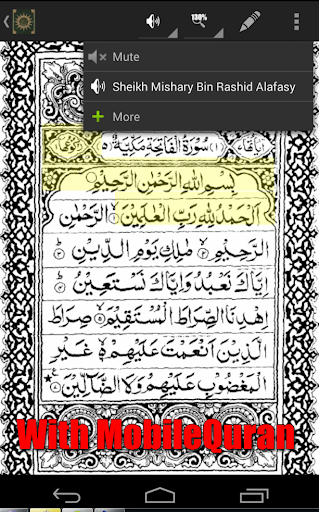 130%
Mute
Sheikh Mishary Bin Rashid Alafasy
More
سُوْرَةُ الْفَاتِحَةِ مَكِّيَّةٌ
بِسْمِ اللهِ الرَّحْمٰنِ الرَّحِيْمِ
اَلْحَمْدُ لِلّٰهِ رَبِّ الْعٰلَمِيْنَ ۙ۱ الرَّحْمٰنِ
الرَّحِيْمِ ۙ۲ مٰلِكِ يَوْمِ الدِّيْنِ ؕ۳
اِيَّاكَ نَعْبُدُ وَاِيَّاكَ نَسْتَعِيْنُ ؕ۴
اِهْدِنَا الصِّرَاطَ الْمُسْتَقِيْمَ ۙ۵ صِرَاطَ
الَّذِيْنَ اَنْعَمْتَ عَلَيْهِمْ ۙ۶ غَيْرِ
الْمَغْضُوْبِ عَلَيْهِمْ وَلَا الضَّآلِّيْنَ ۷
With MobileQuran